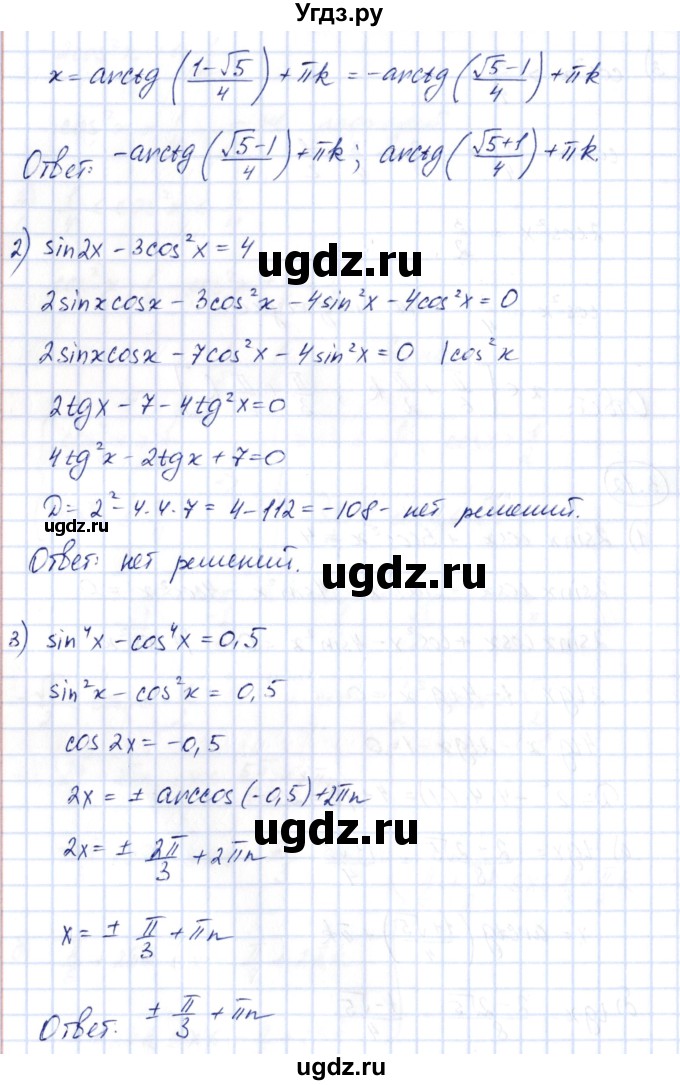 Угдз.ру
x = arctg ((1-√5)/4) + πk = -arctg ((√5-1)/4) + πk
Ответ: -arctg ((√5-1)/4) + πk; arctg ((√5+1)/4) + πk.
2) sin2x - 3cos²x = 4
ugdz.ru
2sinxcosx - 3cos²x - 4sin²x - 4cos²x = 0
2sinxcosx - 7cos²x - 4sin²x = 0 | cos²x
2tgx - 7 - 4tg²x = 0
4tg²x - 2tgx + 7 = 0
D = 2² - 4·4·7 = 4 - 112 = -108 - нет решений.
ugdz.ru
Ответ: нет решений.
ugdz.ru
3) sin⁴x - cos⁴x = 0,5
sin²x - cos²x = 0,5
cos 2x = -0,5
2x = ± arccos(-0,5) + 2πn
ugdz.ru
2x = ± 2π/3 + 2πn
x = ± π/3 + πn
Ответ: ± π/3 + πn
ugdz.ru